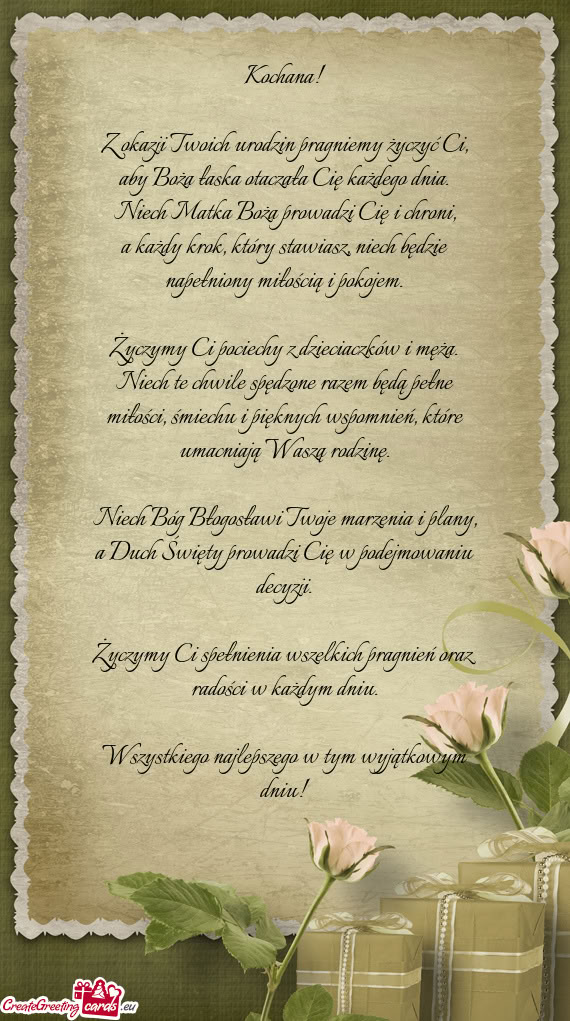 Kochana!
Z okazji Twoich urodzin pragniemy życzyć Ci,
aby Boża łaska otaczała Cię każdego dnia.
Niech Matka Boża prowadzi Cię i chroni,
a każdy krok, który stawiasz, niech będzie
napełniony miłością i pokojem.
Życzymy Ci pociechy z dzieciaczków i męża.
Niech te chwile spędzone razem będą pełne
miłości, śmiechu i pięknych wspomnień, które
umacniają Waszą rodzinę.
Niech Bóg Błogosławi Twoje marzenia i plany,
a Duch Święty prowadzi Cię w podejmowaniu
decyzji.
Życzymy Ci spełnienia wszelkich pragnień oraz
radości w każdym dniu.
Wszystkiego najlepszego w tym wyjątkowym
dniu!
CreateGreetingcards.eu